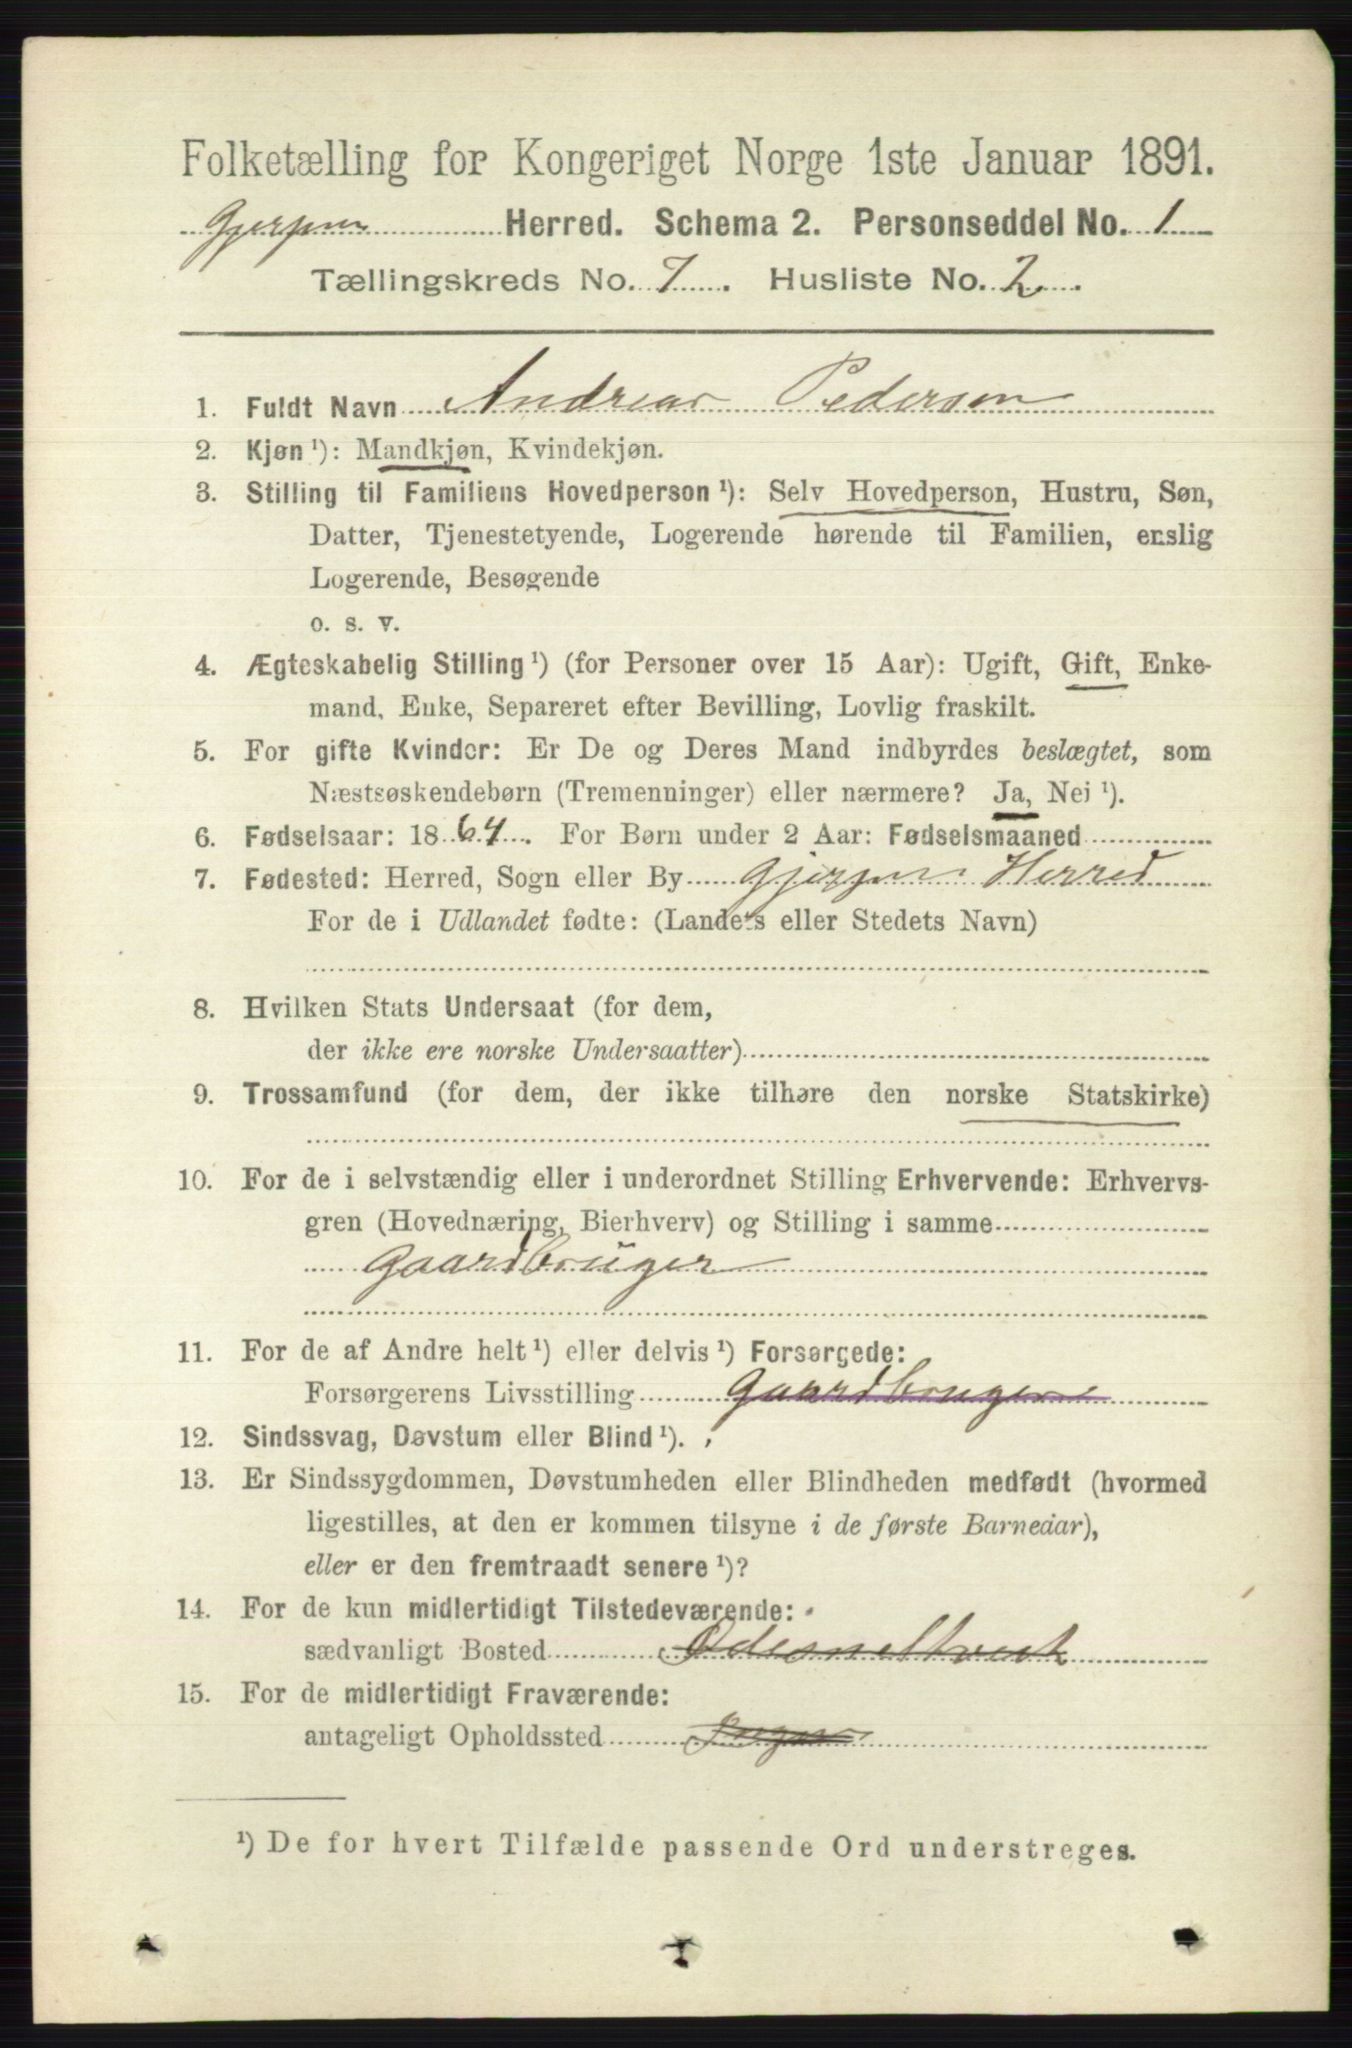 Folketælling for Kongeriget Norge 1ste Januar 1891.
Gjerpen Herred. Schema 2. Personseddel No. 1
Tællingskreds No. 7. Husliste No. 2.
1. Fuldt Navn Andreas Pedersen
2. Kjøn ¹): Mandkjøn, Kvindekjøn.
3. Stilling til Familiens Hovedperson ¹): Selv Hovedperson, Hustru, Søn,
Datter, Tjenestetyende, Logerende hørende til Familien, enslig
Logerende, Besøgende
o. s. v.
4. Ægteskabelig Stilling ¹) (for Personer over 15 Aar): Ugift, Gift, Enke-
mand, Enke, Separeret efter Bevilling, Lovlig fraskilt.
5. For gifte Kvinder: Er De og Deres Mand indbyrdes beslægtet, som
Næstsøskendebørn (Tremenninger) eller nærmere? Ja, Nei ¹).
6. Fødselsaar: 1864. For Børn under 2 Aar: Fødselsmaaned
7. Fødested: Herred, Sogn eller By Gjerpen Herred
For de i Udlandet fødte: (Landets eller Stedets Navn)
8. Hvilken Stats Undersaat (for dem,
der ikke ere norske Undersaatter)
9. Trossamfund (for dem, der ikke tilhøre den norske Statskirke)
10. For de i selvstændig eller i underordnet Stilling Erhvervende: Erhvervs-
gren (Hovednæring, Bierhverv) og Stilling i samme
Gaardbruger
11. For de af Andre helt ¹) eller delvis ¹) Forsørgede:
Forsørgerens Livsstilling Gaardbruger
12. Sindssvag, Døvstum eller Blind ¹).
13. Er Sindssygdommen, Døvstumheden eller Blindheden medfødt (hvormed
ligestilles, at den er kommen tilsyne i de første Barneaar),
eller er den fremtraadt senere ¹)?
14. For de kun midlertidigt Tilstedeværende:
sædvanligt Bosted
15. For de midlertidigt Fraværende:
antageligt Opholdssted Ingen
¹) De for hvert Tilfælde passende Ord understreges.